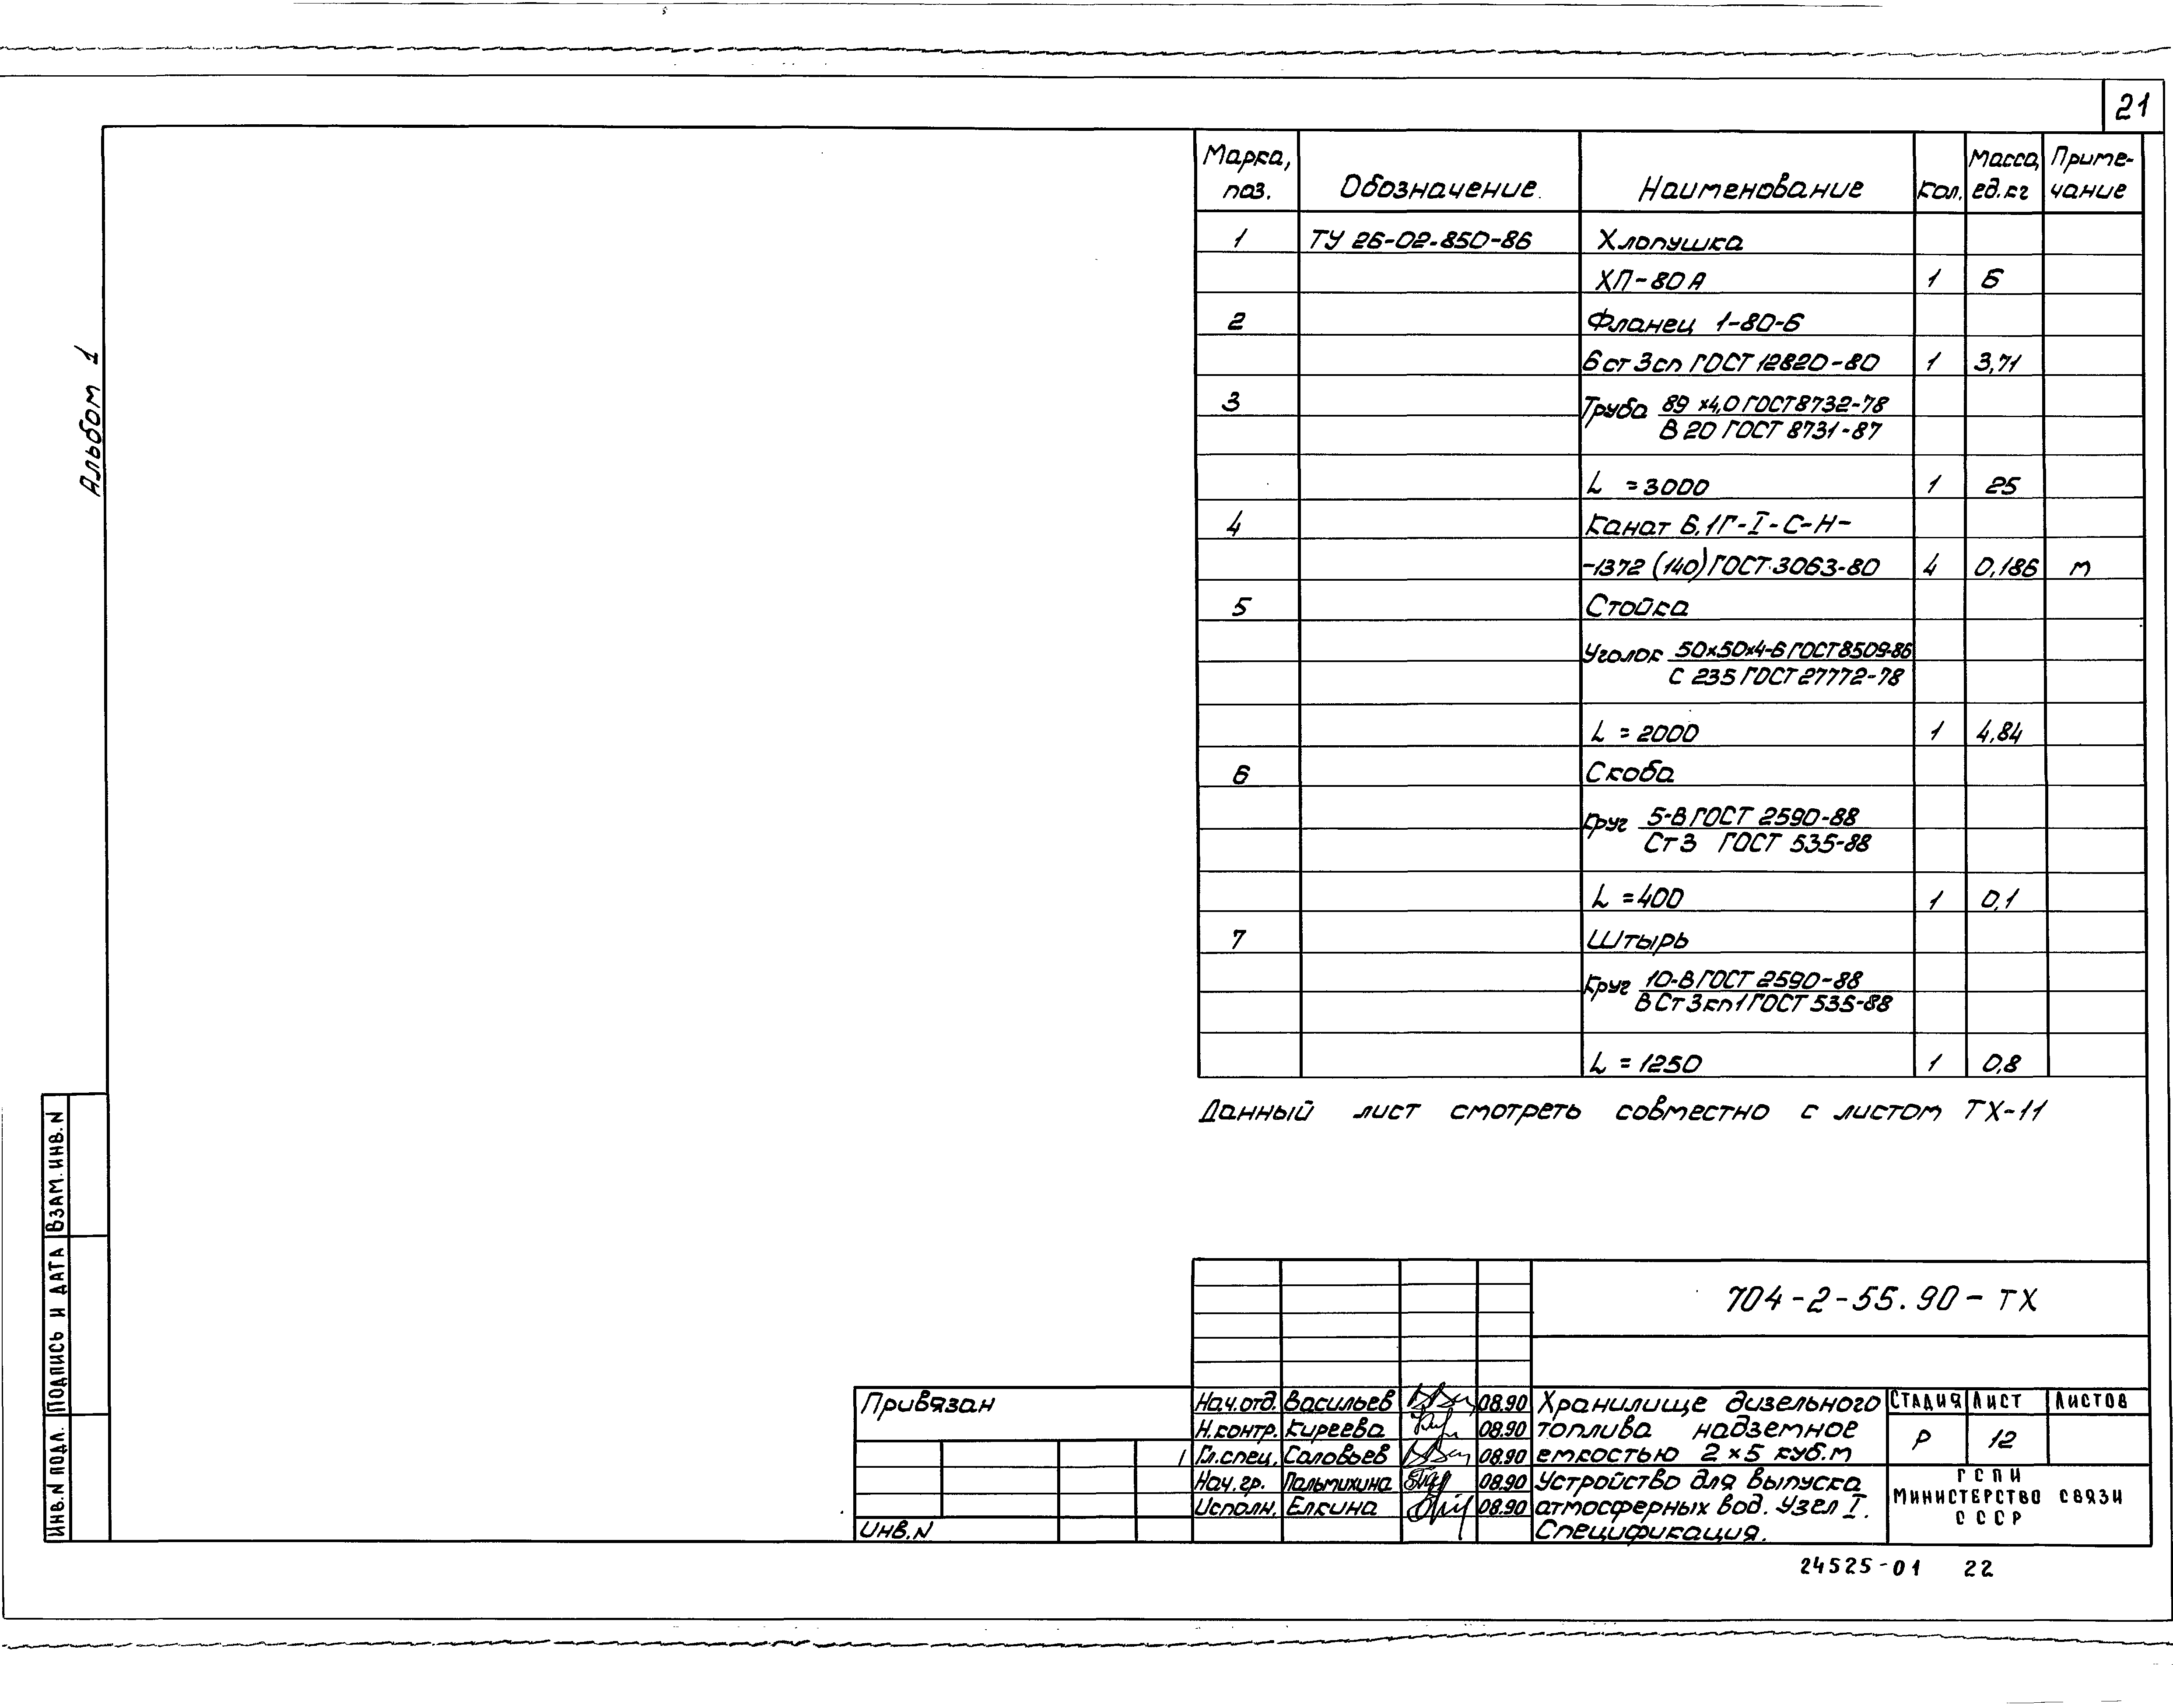 21
Альбом 1
Марка, поз. Обозначение Наименование Кол. Масса, ед.кг Приме-чание
1 ТУ 26-02-850-86 Хлопушка
ХП-80А 1 6
2 Фланец 1-80-6
6 ст 3сп ГОСТ 12820-80 1 3,71
3 Труба 89 х4,0 ГОСТ 8732-78
В 20 ГОСТ 8731-87
L = 3000 1 25
4 Канат 6,1Г-I-С-Н-
-1372 (140) ГОСТ 3063-80 4 0,186 м
5 Стойка
Уголок 50х50х4-Б ГОСТ 8509-86
С 235 ГОСТ 27772-78
L = 2000 1 4,84
6 Скоба
Круг 5-В ГОСТ 2590-88
Ст 3 ГОСТ 535-88
L = 400 1 0,1
7 Штырь
Круг 10-В ГОСТ 2590-88
В Ст 3кп1 ГОСТ 535-88
L = 1250 1 0,8
Данный лист смотреть совместно с листом ТХ-11
Взам. инв. N
Подпись и дата
Инв. N подл.
704-2-55.90-ТХ
Привязан
Инв. N
Нач.отд. Васильев 08.90
Н.контр. Киреева 08.90
Гл.спец. Соловьев 08.90
Нач.гр. Пальмихина 08.90
Исполн. Елкина 08.90
Хранилище дизельного
топлива надземное
емкостью 2х5 куб.м
Устройство для выпуска
атмосферных вод. Узел I.
Спецификация.
Стадия Лист Листов
Р 12
ГСПИ
Министерство связи
СССР
24525-01 22